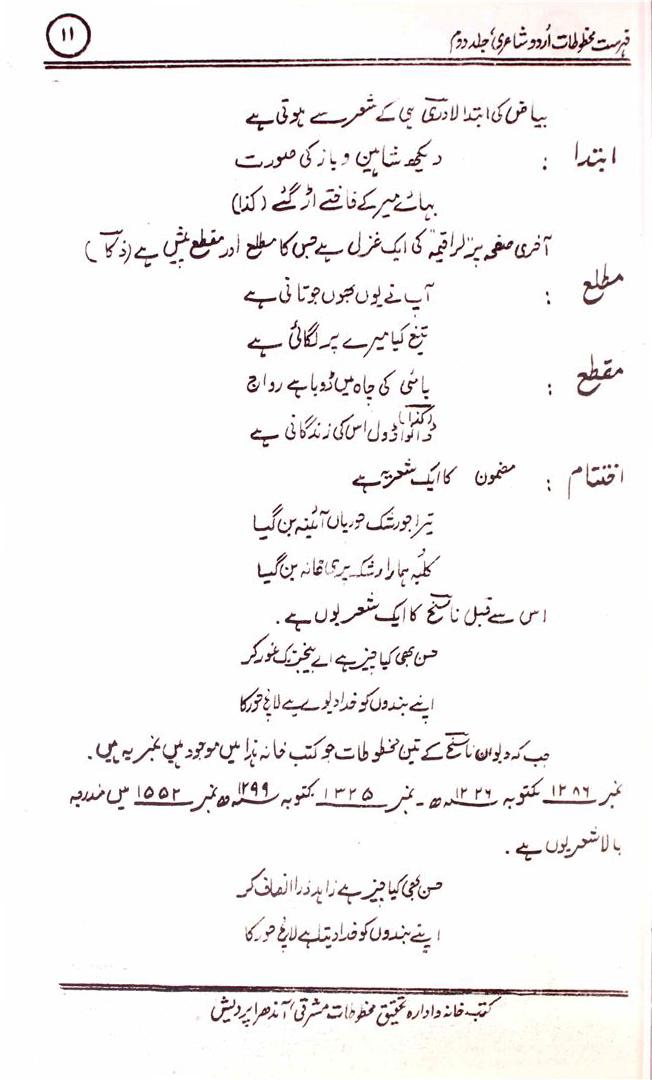 فہرست مخطوطات اُردو شاعری، جلد دوم ۱۱
بیاض کی ابتدا لاادری ہی کے شعر سے ہوتی ہے
ابتدا : دیکھ شاہین و باز کی صورت
بہائے میر کے فاختے اڑ گئے (کذا)
آخری صفحہ پر "لراقیمہ" کی ایک غزل ہے جس کا مطلع اور مقطع پیش ہے (ذکا)
مطلع : آپ نے یوں بھوں جو تانی ہے
تیغ کیا میرے پر لگائی ہے
مقطع : یاسٰی کی چاہ میں ڈوبا ہے رواج
(کذا)
ڈانواڈول اس کی زندگانی ہے
اختتام : مضمون کا ایک شعر یہ ہے
تیرا جو رشک حوریاں آئینہ بن گیا
کلبہ ہمارا رشک پری خانہ بن گیا
اس سے قبل ناسخ کا ایک شعر یوں ہے ۔
حسن بھی کیا چیز ہے اے بیخبر یک غور کر
اپنے بندوں کو خدا دیوے ہے لالچ حور کا
جب کہ دیوان ناسخ کے تین مخطوطات جو کتب خانہ ہذا میں موجود ہیں نمبر یہ ہیں ۔
نمبر ۱۲۸۶ مکتوبہ ۱۲۲۶ھ ۔ نمبر ۱۳۲۵ مکتوبہ ۱۲۹۹ھ نمبر ۱۵۵۲ میں مندرجہ
بالا شعر یوں ہے ۔
حسن بھی کیا چیز ہے زاہد ذرا انصاف کر
اپنے بندوں کو خدا دیتا ہے لالچ حور کا
کتب خانہ و ادارہ تحقیق مخطوطات مشرقی، آندھرا پردیش